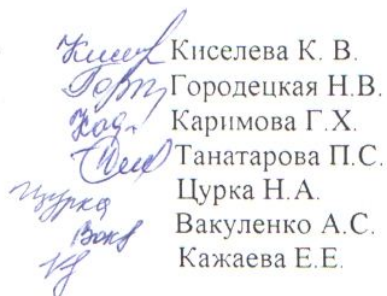 Киселева К. В.
Городецкая Н.В.
Каримова Г.Х.
Танатарова П.С.
Цурка Цурка Н.А.
Вакуленко А.С.
Кажаева Е.Е.